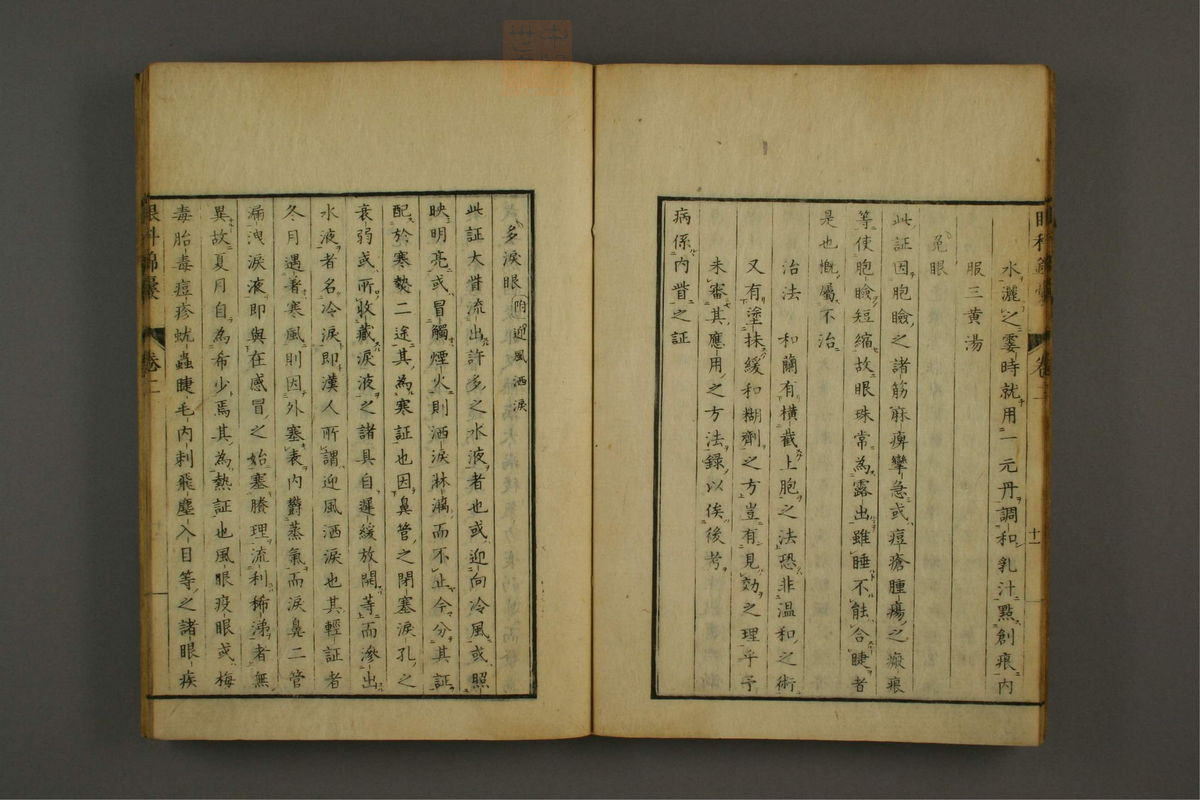 水灑之霎時就用一元丹調和乳汁點創痕內
服三黄湯
兔眼
此證因胞瞼之諸筋麻痺攣急或痘瘡腫瘍之瘢痕
等使胞瞼短縮故眼珠常為露出雖睡不能合睫者
是也慨屬不治
治法 和蘭有橫截上胞之法恐非温和之術
又有塗抹緩和糊劑之方豈有見効之理乎予
未審其應用之方法錄以俟後考
病係内眥之証
十一
多淚眼 附迎風洒淚
此証大眥流出許多之水液者也或迎向冷風或照
映明亮或冒觸煙火則洒淚淋漓而不止今分其証
配於寒熱二途其為寒証也因鼻管之閉塞淚孔之
衰弱或所收藏淚液之諸具自遲緩放開等而滲出
水液者名冷淚即漢人所謂迎風洒淚也其輕証者
冬月遇著寒風則因外塞表内欝蒸氣而淚鼻二管
漏洩淚液即與在感冒之始塞腠理流利稀涕者無
異故夏月自為希少焉其為熱証也風眼疫眼或梅
毒胎毒痘疹蚘蟲睫毛内刺飛塵入目等之諸眼疾
眼科錦囊 卷二